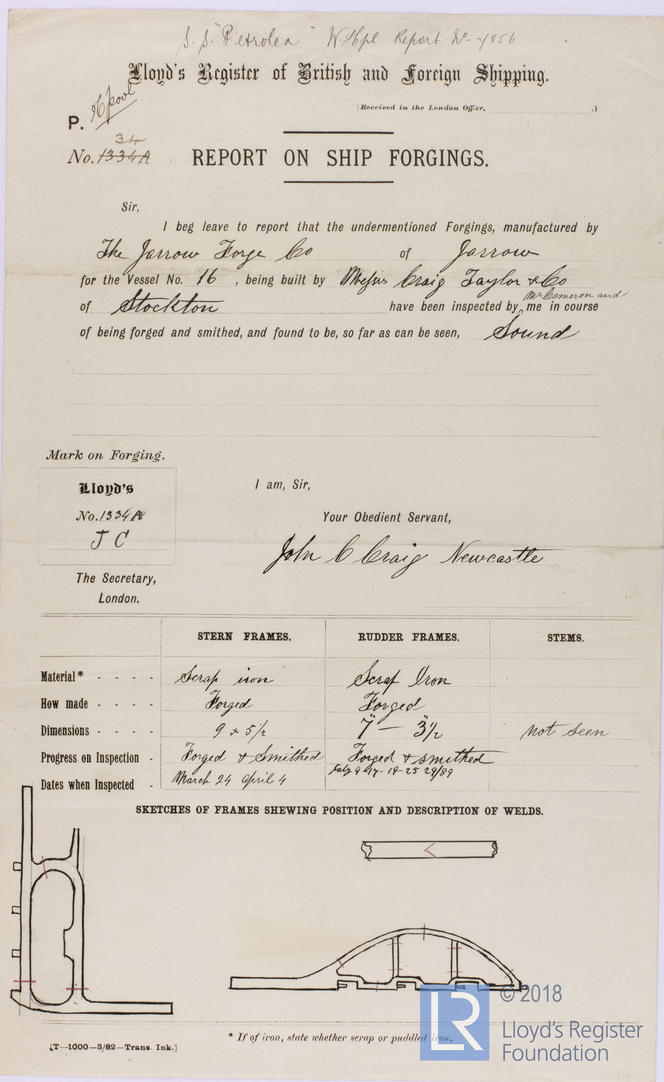 S.S. "Petrolea" W.Hpl Report No. 7856
Lloyd's Register of British and Foreign Shipping.
(Received in the London Office, .)
P. H'pool
34
No. 1334A REPORT ON SHIP FORGINGS.
Sir,
I beg leave to report that the undermentioned Forgings, manufactured by
The Jarrow Forge Co of Jarrow
for the Vessel No. 16 , being built by Messrs Craig Taylor & Co
of Stockton have been inspected by Mr Cameron and me in course
of being forged and smithed, and found to be, so far as can be seen, Sound
Mark on Forging.
Lloyd's
No. 1334A
J C
I am, Sir,
Your Obedient Servant,
John C Craig Newcastle
The Secretary,
London.
STERN FRAMES. RUDDER FRAMES. STEMS.
Material* - - - - Scrap iron Scrap Iron
How made - - - - Forged Forged
Dimensions - - - - 9 x 5½ 7" — 3"½ not seen
Progress on Inspection - Forged & Smithed Forged & smithed
Dates when Inspected - March 24 April 4 25 28/89
SKETCHES OF FRAMES SHEWING POSITION AND DESCRIPTION OF WELDS.
* If of iron, state whether scrap or puddled iron.
[T—1000—3/82—Trans. Ink.]
LR
© 2018
Lloyd's Register
Foundation